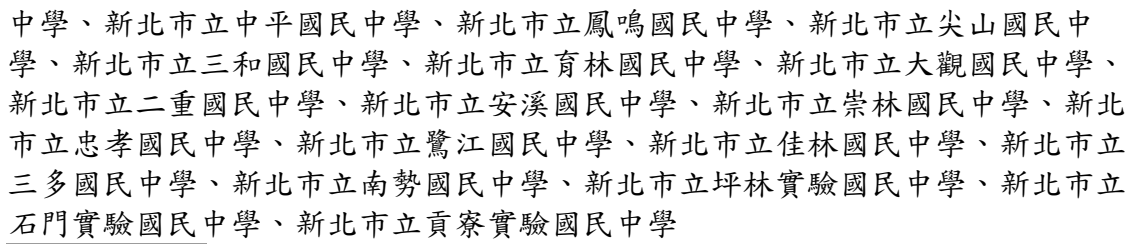 中學、新北市立中平國民中學、新北市立鳳鳴國民中學、新北市立尖山國民中
學、新北市立三和國民中學、新北市立育林國民中學、新北市立大觀國民中學、
新北市立二重國民中學、新北市立安溪國民中學、新北市立崇林國民中學、新北
市立忠孝國民中學、新北市立鷺江國民中學、新北市立佳林國民中學、新北市立
三多國民中學、新北市立南勢國民中學、新北市立坪林實驗國民中學、新北市立
石門實驗國民中學、新北市立貢寮實驗國民中學